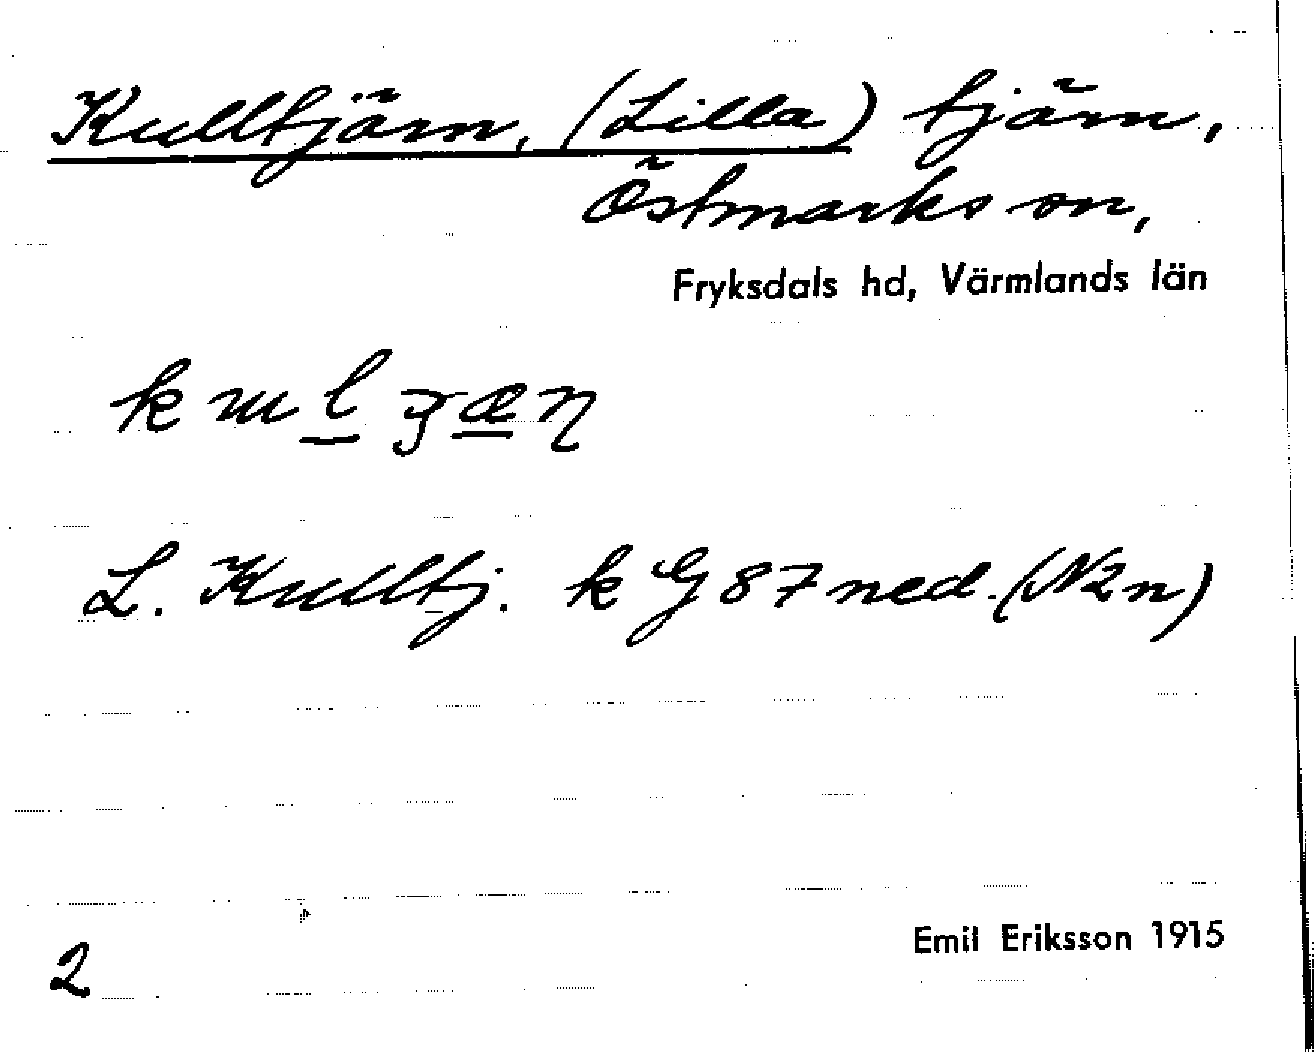 Kulltjärn, (Lilla) tjärn,
Östmarks sn,
Fryksdals hd, Värmlands län
L. Kulltj. k G 87 ned. (N2n)
Emil Eriksson 1915
2